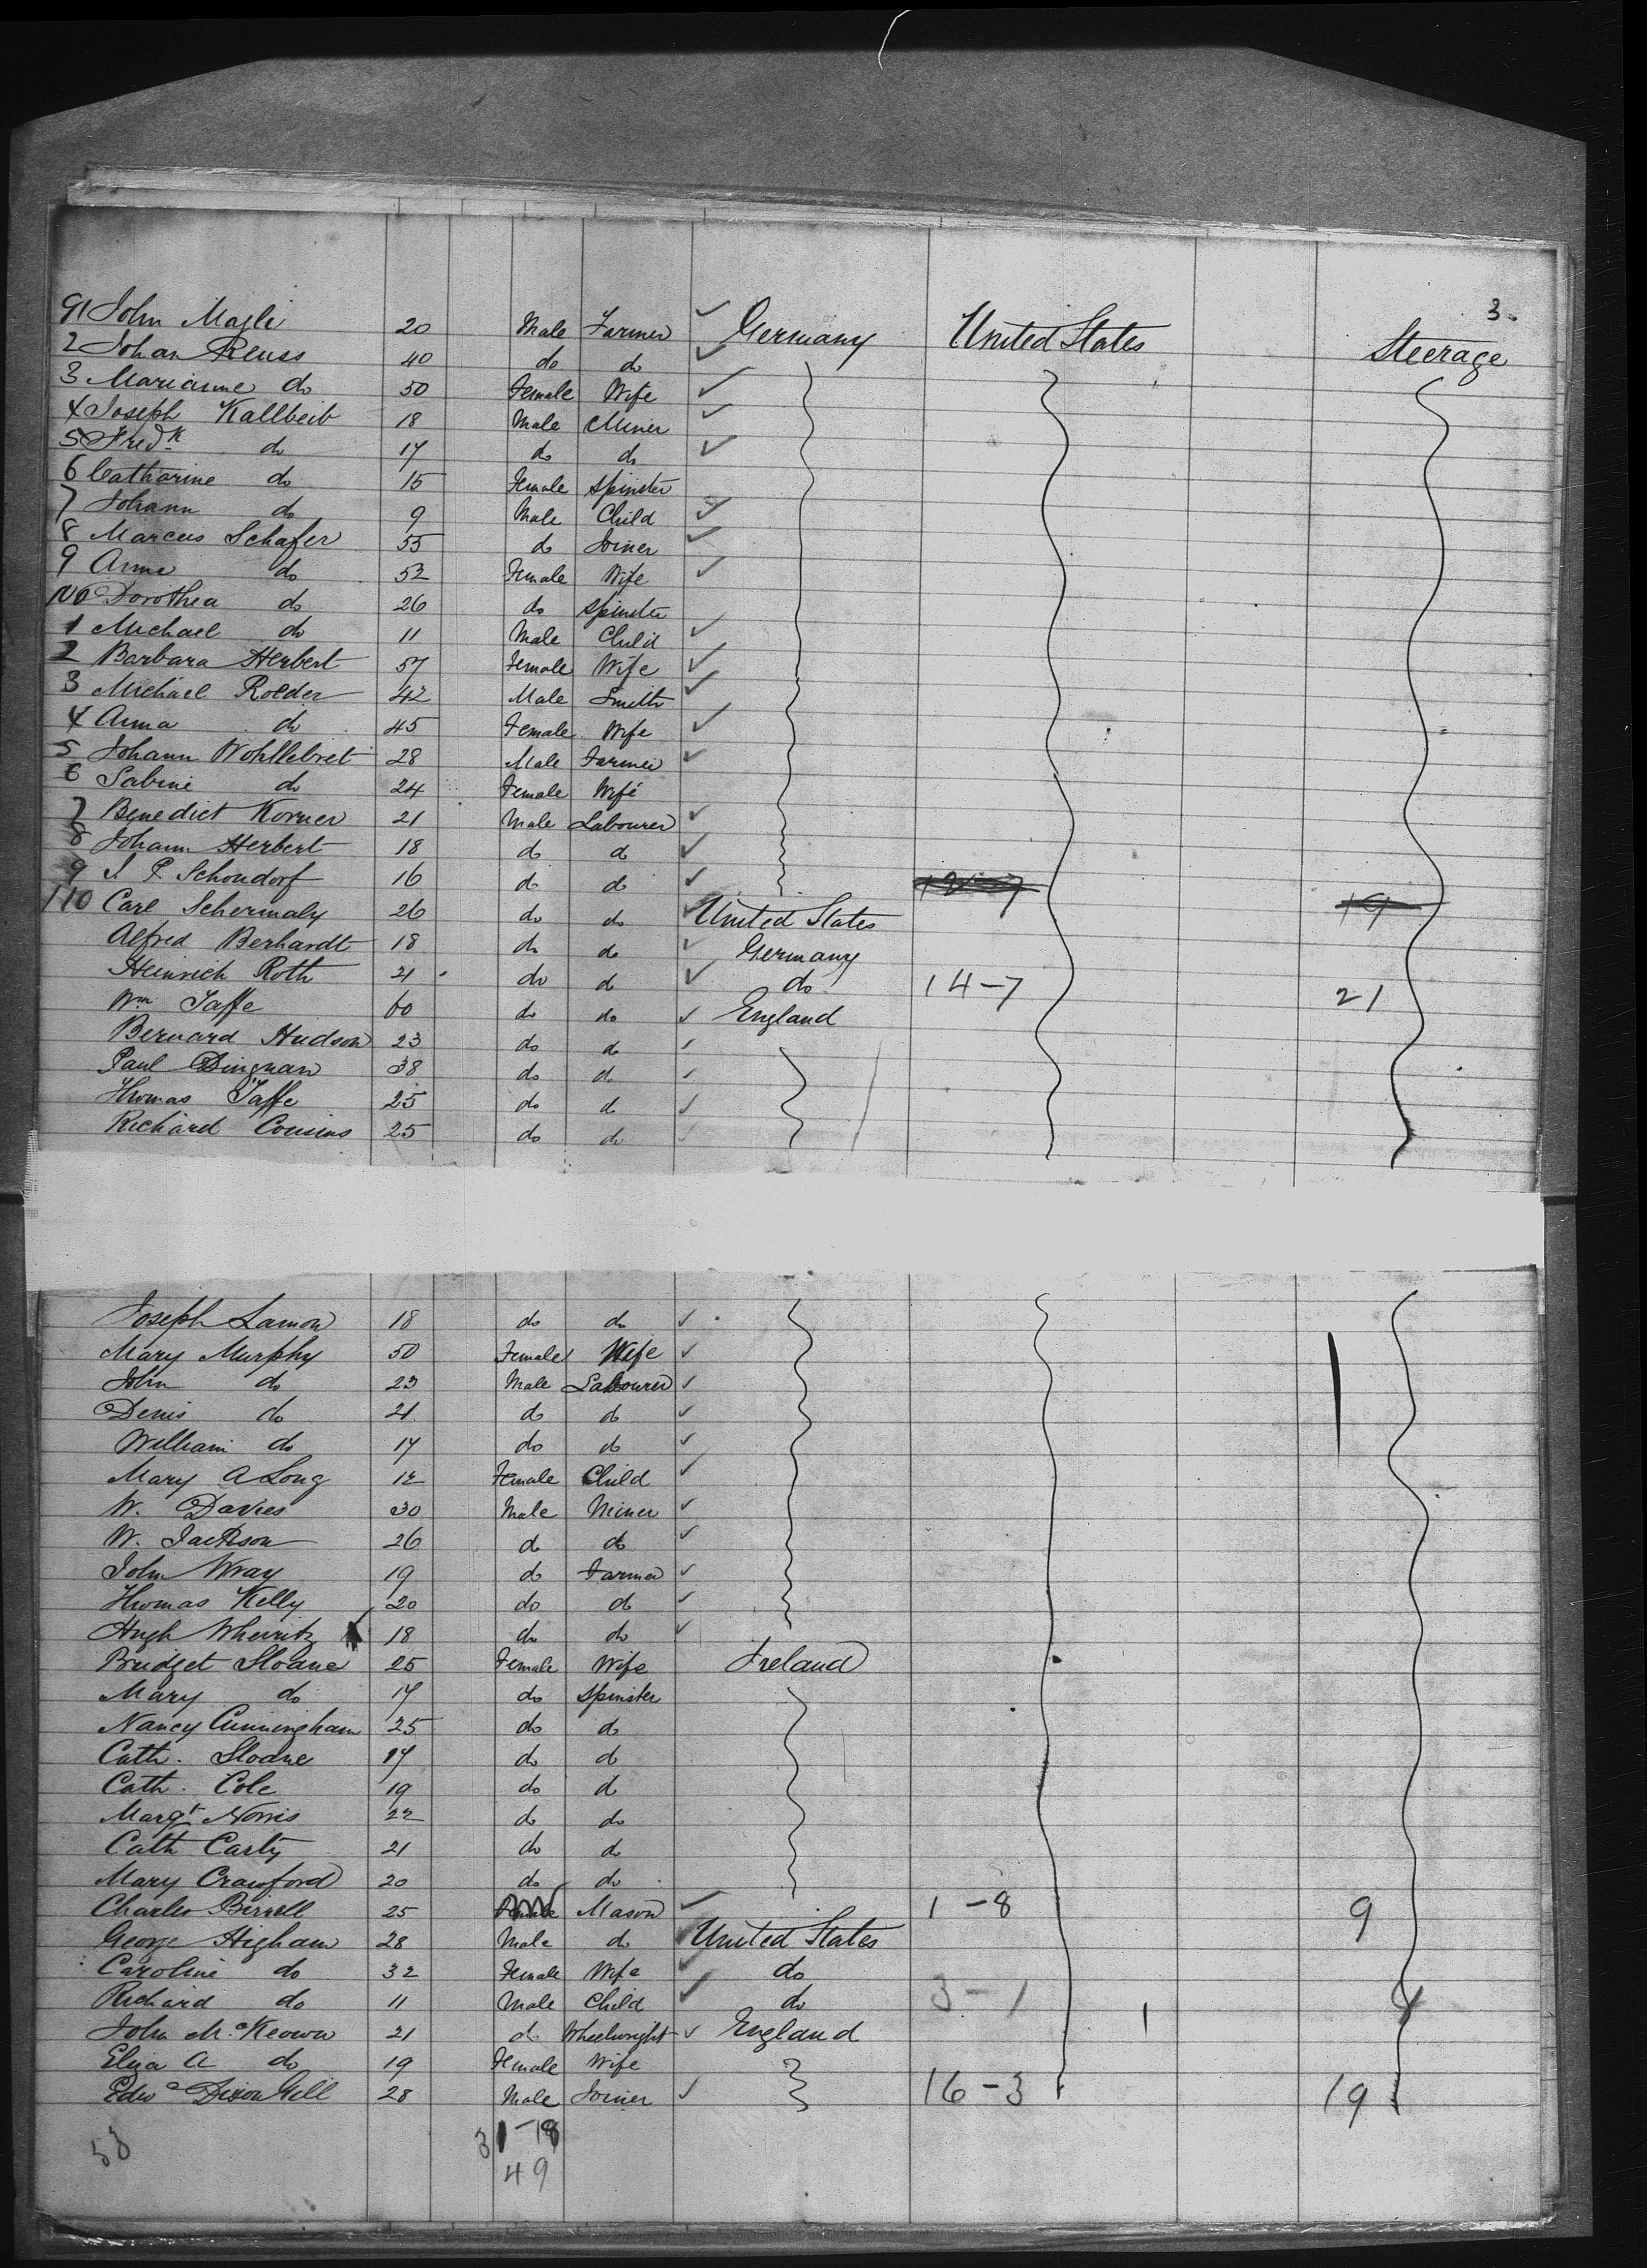 3.
91 John Magli 20 Male Farmer Germany United States Steerage
2 Johan Reuss 40 do do
3 Marianne do 50 Female Wife
4 Joseph Kallbeit 18 Male Miner
5 Fredk do 17 do do
6 Catharine do 15 Female Spinster
7 Johann do 9 Male Child
8 Marcus Schafer 55 do Joiner
9 Anna do 52 Female Wife
100 Dorothea do 26 do Spinster
1 Michael do 11 Male Child
2 Barbara Herbert 57 Female Wife
3 Michael Roeder 42 Male Smith
4 Anna do 45 Female Wife
5 Johann Wohllebret 28 Male Farmer
6 Sabine do 24 Female Wife
7 Benedict Korner 21 Male Labourer
8 Johann Herbert 18 do do
9 J P. Schondorf 16 do do
110 Carl Schermaly 26 do do United States 19
Alfred Berhardt 18 do do Germany
Heinrich Roth 21 do do do 14-7 21
Wm Taffe 60 do do England
Bernard Hudson 23 do do
Paul Dingnan 38 do do
Thomas Taffe 25 do do
Richard Cousins 25 do do
Joseph Lamon 18 do do
Mary Murphy 50 Female Wife
John do 23 Male Labourer
Denis do 21 do do
William do 17 do do
Mary A Long 12 Female Child
W. Davies 30 Male Miner
W. Jackson 26 do do
John Wray 19 do Farmer
Thomas Kelly 20 do do
Hugh 18 do do
Bridget Sloane 25 Female Wife Ireland
Mary do 17 do Spinster
Nancy Cunningham 25 do do
Cath. Sloane 17 do do
Cath. Cole 19 do do
Margt Norris 22 do do
Cath Carty 21 do do
Mary Crawford 20 do do
Charles Birrell 25 Mason 1-8 9
George Higham 28 Male do United States
Caroline do 32 Female Wife do
Richard do 11 Male Child do 3-1
John McKeown 21 do Wheelwright England 1
Eliza A do 19 Female Wife
Edwd Dixon Gill 28 Male Joiner 16-3 19
53 31-18
49